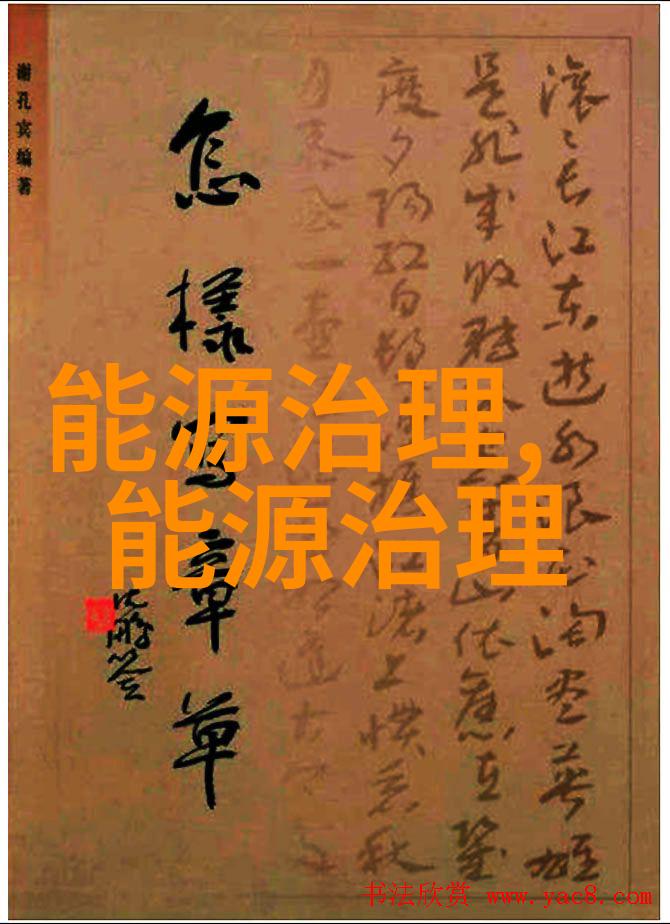 能源治理,
能源治理
谢孔宾编著
怎樣写章草
沈鹏签
滚〻长江东逝水浪花淘尽英雄
是非成败转头空青山依旧在
度夕阳红白发渔樵江渚上惯看秋
月春风一壶
书法欣赏 www.yac8.com